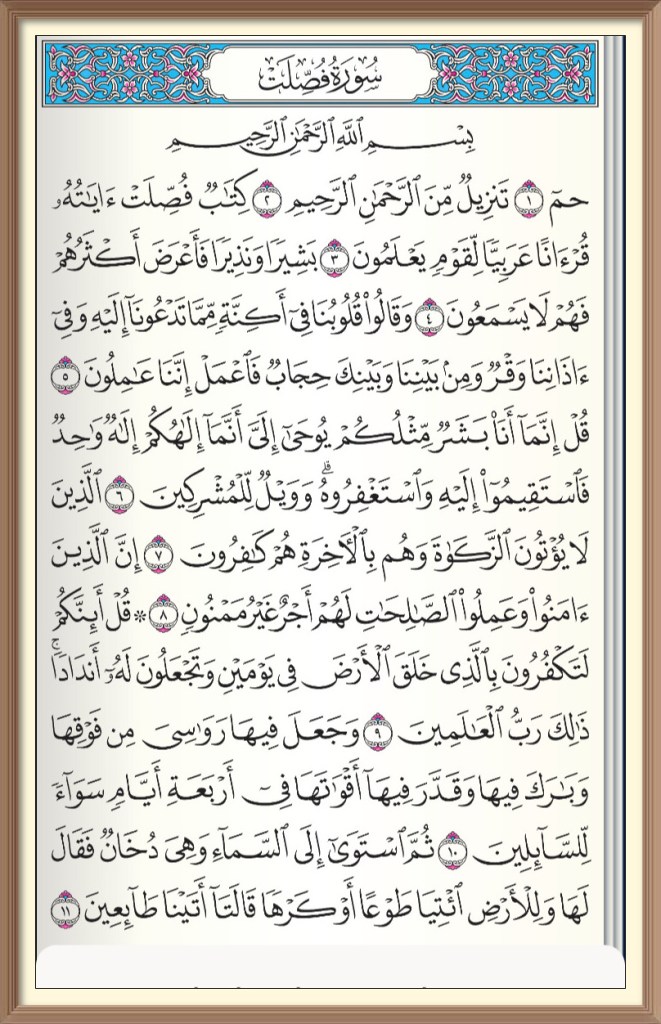 سُورَةُ فُصِّلَتْ
بِسْمِ ٱللَّهِ ٱلرَّحْمَٰنِ ٱلرَّحِيمِ
حمٓ ١ تَنزِيلٌ مِّنَ ٱلرَّحْمَٰنِ ٱلرَّحِيمِ ٢ كِتَٰبٌ فُصِّلَتْ ءَايَٰتُهُۥ
قُرْءَانًا عَرَبِيًّا لِّقَوْمٍ يَعْلَمُونَ ٣ بَشِيرًا وَنَذِيرًا فَأَعْرَضَ أَكْثَرُهُمْ
فَهُمْ لَا يَسْمَعُونَ ٤ وَقَالُوا۟ قُلُوبُنَا فِىٓ أَكِنَّةٍ مِّمَّا تَدْعُونَآ إِلَيْهِ وَفِىٓ
ءَاذَانِنَا وَقْرٌ وَمِنۢ بَيْنِنَا وَبَيْنِكَ حِجَابٌ فَٱعْمَلْ إِنَّنَا عَٰمِلُونَ ٥
قُلْ إِنَّمَآ أَنَا۠ بَشَرٌ مِّثْلُكُمْ يُوحَىٰٓ إِلَىَّ أَنَّمَآ إِلَٰهُكُمْ إِلَٰهٌ وَٰحِدٌ
فَٱسْتَقِيمُوٓا۟ إِلَيْهِ وَٱسْتَغْفِرُوهُ ۗ وَوَيْلٌ لِّلْمُشْرِكِينَ ٦ ٱلَّذِينَ
لَا يُؤْتُونَ ٱلزَّكَوٰةَ وَهُم بِٱلْءَاخِرَةِ هُمْ كَٰفِرُونَ ٧ إِنَّ ٱلَّذِينَ
ءَامَنُوا۟ وَعَمِلُوا۟ ٱلصَّٰلِحَٰتِ لَهُمْ أَجْرٌ غَيْرُ مَمْنُونٍ ٨ ۞ قُلْ أَئِنَّكُمْ
لَتَكْفُرُونَ بِٱلَّذِى خَلَقَ ٱلْأَرْضَ فِى يَوْمَيْنِ وَتَجْعَلُونَ لَهُۥٓ أَندَادًا ۚ
ذَٰلِكَ رَبُّ ٱلْعَٰلَمِينَ ٩ وَجَعَلَ فِيهَا رَوَٰسِىَ مِن فَوْقِهَا
وَبَٰرَكَ فِيهَا وَقَدَّرَ فِيهَآ أَقْوَٰتَهَا فِىٓ أَرْبَعَةِ أَيَّامٍ سَوَآءً
لِّلسَّآئِلِينَ ١٠ ثُمَّ ٱسْتَوَىٰٓ إِلَى ٱلسَّمَآءِ وَهِىَ دُخَانٌ فَقَالَ
لَهَا وَلِلْأَرْضِ ٱئْتِيَا طَوْعًا أَوْ كَرْهًا قَالَتَآ أَتَيْنَا طَآئِعِينَ ١١